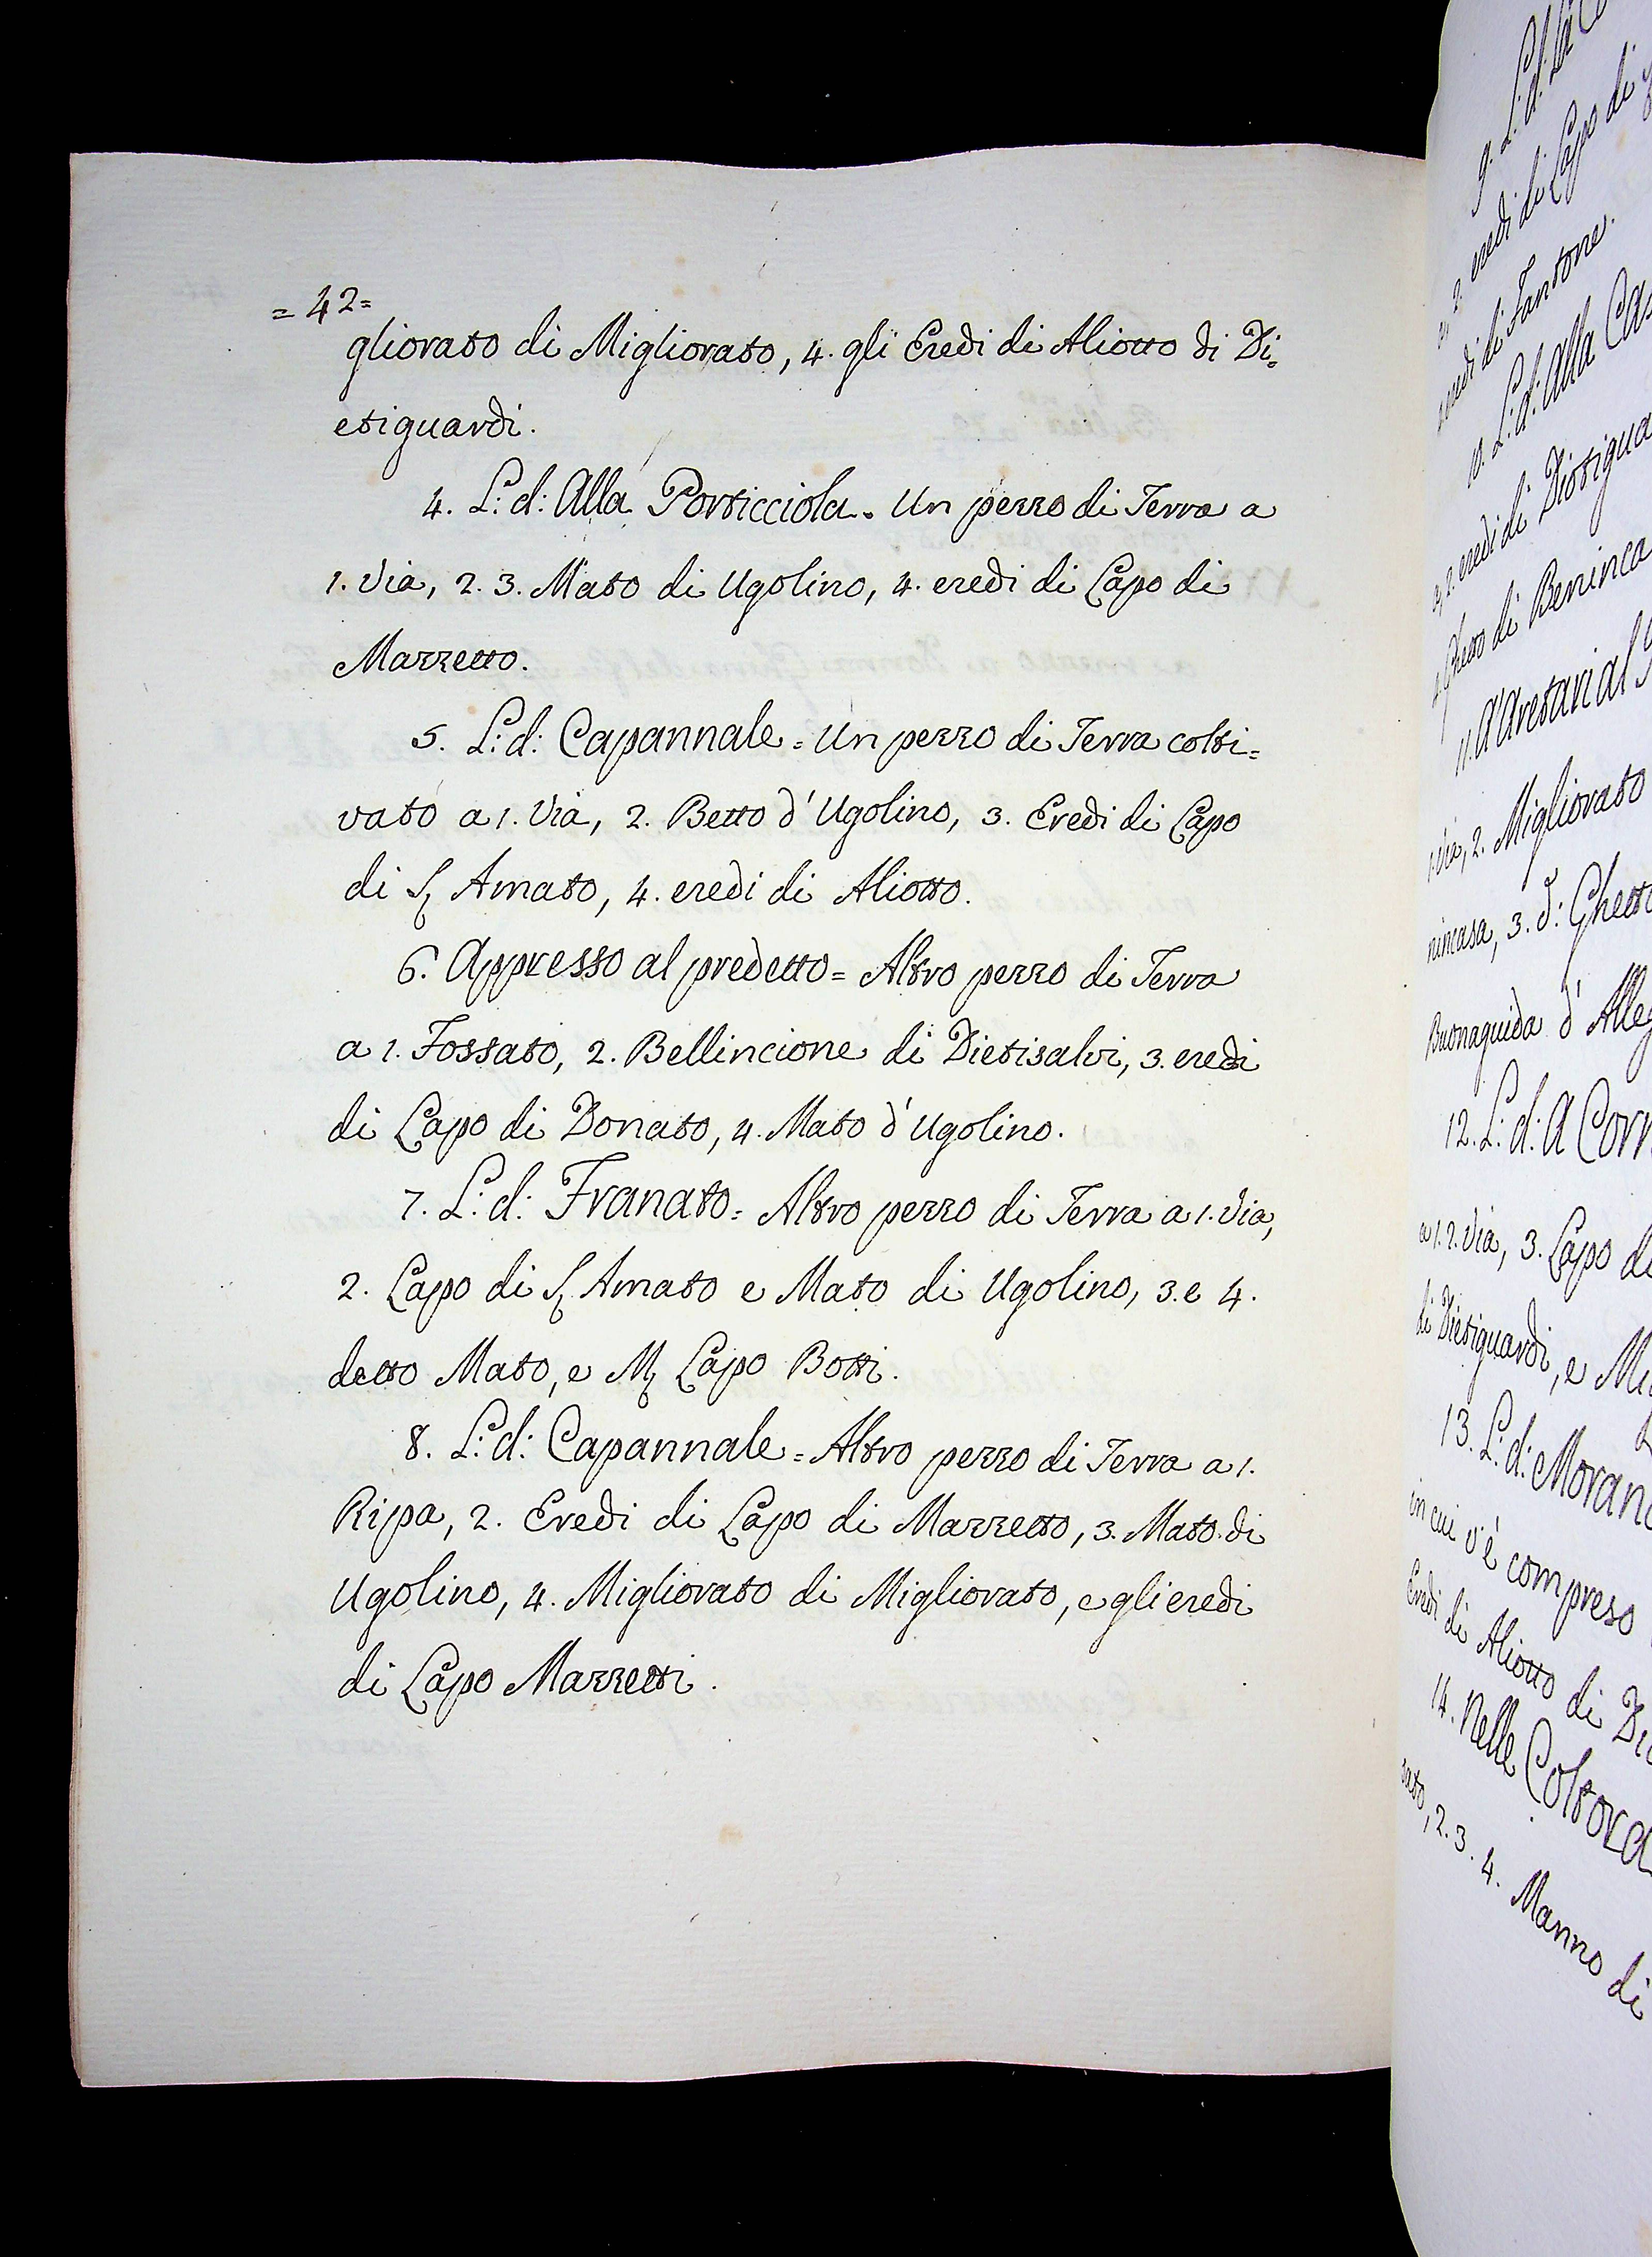 = 42 =
gliorato di Migliorato, 4. gli Eredi di Aliotto di Di=
etiguardi.
4. L: d: Alla Porticciola. Un pezzo di Terra a
1. Via, 2. 3. Mato di Ugolino, 4. eredi di Lapo di
Mazzetto.
5. L: d: Capannale = Un pezzo di Terra colti=
vato a 1. Via, 2. Betto d'Ugolino, 3. Eredi di Lapo
di S. Amato, 4. eredi di Aliotto.
6. Appresso al predetto = Altro pezzo di Terra
a 1. Fossato, 2. Bellincione di Dietisalvi, 3. eredi
di Lapo di Donato, 4. Mato d'Ugolino.
7. L: d: Franato = Altro pezzo di Terra a 1. Via,
2. Lapo di S. Amato e Mato di Ugolino, 3. e 4.
detto Mato, e M. Lapo Botti.
8. L: d: Capannale = Altro pezzo di Terra a 1.
Ripa, 2. Eredi di Lapo di Mazzetto, 3. Mato di
Ugolino, 4. Migliorato di Migliorato, e gli eredi
di Lapo Mazzetti.
9. L: d:
2. eredi di Lapo di
eredi di Fantone.
10. L: d: Alla
2. eredi di
Ghetto di Beninca
11. A' Aretari al
1. Via, 2. Migliorato
nincasa, 3. d: Ghetto
Buonaguida d'
12. L: d: A
a 1. 2. Via, 3. Lapo
di Dietiguardi, e
13. L: d:
in cui v'é compreso
Eredi di Aliotto di
14. Nelle
2. 3. 4. Manno di